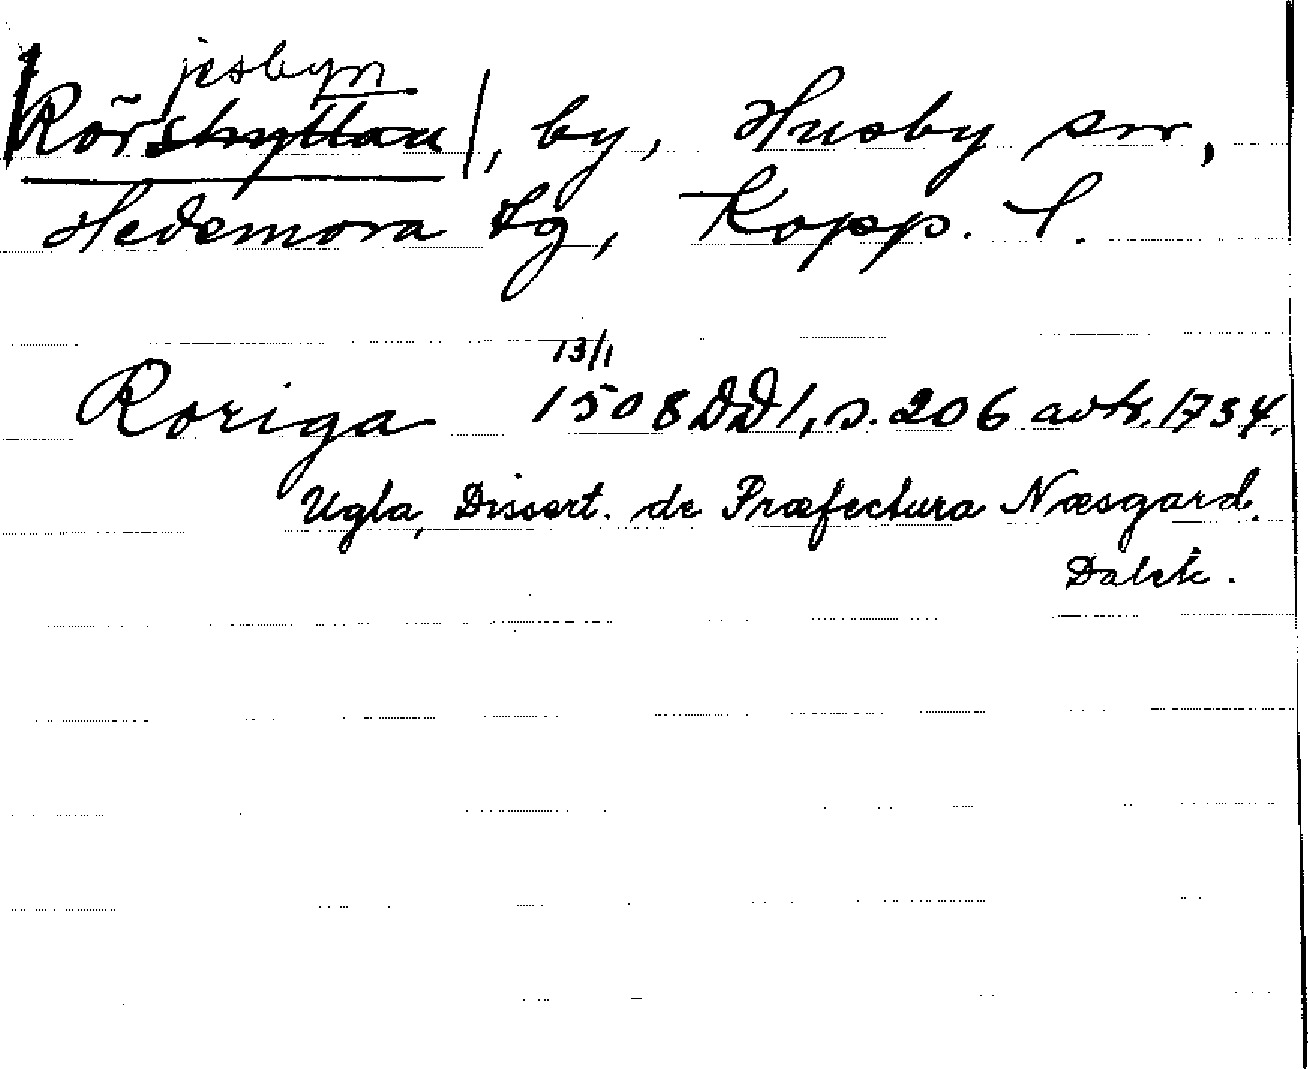 jesbyn
Rörshyttan, by, Husby sn,
Hedemora tg, Kopp. l.
13/1
Roriga 1508 DD1, s. 206 avtr. 1734.
Ugla, Dissert. de Præfectura Næsgard.
Dalek.